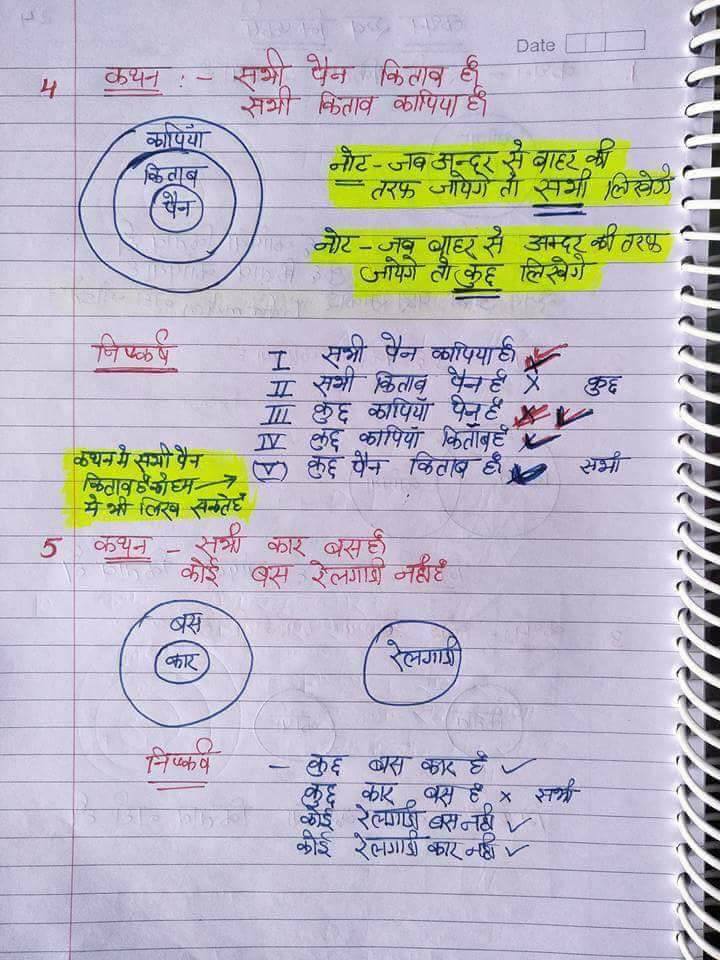 Date
4 कथन :- सभी पैन किताब हैं।
सभी किताब कापिया हैं।
कापियाँ
किताब
पैन
नोट - जब अन्दर से बाहर की
तरफ जायेगे तो सभी लिखेगे
नोट - जब बाहर से अन्दर की तरफ
जायेगे तो कुछ लिखेगे
निष्कर्ष I सभी पैन कापिया है। ✓
II सभी किताब पैन है × कुछ
III कुछ कापियाँ पैन है × ✓
IV कुछ कापियाँ किताब है ✓
(V) कुछ पैन किताब है। ✓ सभी
कथन मे सभी पैन
किताब है को हम →
मे भी लिख सकते है
5 कथन - सभी कार बस है।
कोई बस रेलगाडी नही है
बस
कार
रेलगाडी
निष्कर्ष - कुछ बस कार है ✓
कुछ कार बस है × सभी
कोई रेलगाडी बस नही ✓
कोई रेलगाडी कार नही ✓